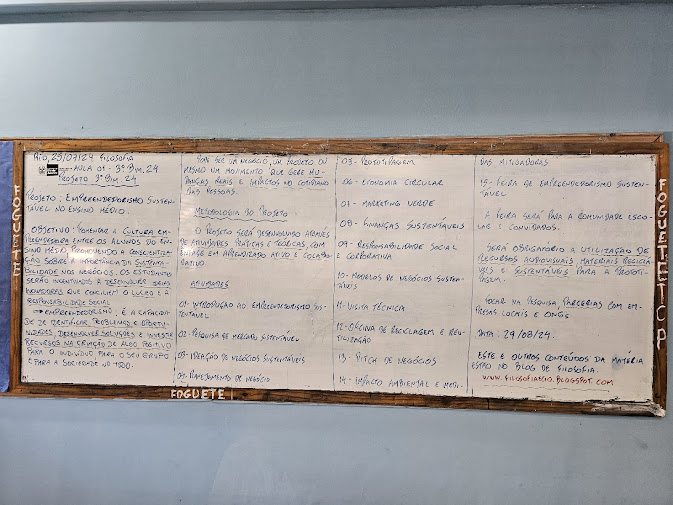 RIO, 29/07/24 FILOSOFIA
AULA 01 - 3º BIM. 24
PROJETO 3º BIM. 24
PROJETO: EMPREENDEDORISMO SUSTEN-
TÁVEL NO ENSINO MÉDIO.
OBJETIVO: FOMENTAR A CULTURA EM-
PREENDEDORA ENTRE OS ALUNOS DO EN-
SINO MÉDIO, PROMOVENDO A CONSCIENTIZA-
ÇÃO SOBRE A IMPORTÂNCIA DA SUSTENTA-
BILIDADE NOS NEGÓCIOS. OS ESTUDANTES
SERÃO INCENTIVADOS A DESENVOLVER IDEIAS
INOVADORAS QUE CONCILIEM O LUCRO E A
RESPONSABILIDADE SOCIAL
→ EMPREENDEDORISMO: É A CAPACIDA-
DE DE IDENTIFICAR PROBLEMAS E OPORTU-
NIDADES, DESENVOLVER SOLUÇÕES E INVESTIR
RECURSOS NA CRIAÇÃO DE ALGO POSITIVO
PARA O INDIVÍDUO PARA O SEU GRUPO
E PARA A SOCIEDADE NO TODO.
PODE SER UM NEGÓCIO, UM PROJETO OU
MESMO UM MOVIMENTO QUE GERE MU-
DANÇAS REAIS E IMPACTOS NO COTIDIANO
DAS PESSOAS.
METODOLOGIA DO PROJETO
O PROJETO SERÁ DESENVOLVIDO ATRAVÉS
DE ATIVIDADES PRÁTICAS E TEÓRICAS, COM
ÊNFASE EM APRENDIZADO ATIVO E COLABO-
RATIVO.
ATIVIDADES
01- INTRODUÇÃO AO EMPREENDEDORISMO SUS-
TENTÁVEL
02- PESQUISA DE MERCADO SUSTENTÁVEL
03- IDEAÇÃO DE NEGÓCIOS SUSTENTÁVEIS
04- PLANEJAMENTO DE NEGÓCIO
PROTOTIPAGEM
06- ECONOMIA CIRCULAR
07- MARKETING VERDE
08- FINANÇAS SUSTENTÁVEIS
09- RESPONSABILIDADE SOCIAL
CORPORATIVA
10- MODELOS DE NEGÓCIOS SUSTEN-
TÁVEIS
11- VISITA TÉCNICA
12- OFICINA DE RECICLAGEM E REU-
TILIZAÇÃO
13- PITCH DE NEGÓCIOS
14- IMPACTO AMBIENTAL E MEDI-
DAS MITIGADORAS
15- FEIRA DE EMPREENDEDORISMO SUSTEN-
TÁVEL
A FEIRA SERÁ PARA A COMUNIDADE ESCO-
LAR E CONVIDADOS.
SERÁ OBRIGATÓRIO A UTILIZAÇÃO DE
RECURSOS AUDIOVISUAIS, MATERIAIS RECICLÁ-
VEIS E SUSTENTÁVEIS PARA A PROTOTI-
PAGEM.
FOCAR NA PESQUISA PARCERIAS COM EM-
PRESAS LOCAIS E ONGS
DATA: 29/08/24.
ESTE E OUTROS CONTEÚDOS DA MATÉRIA
ESTÃO NO BLOG DE FILOSOFIA.
FOGUETE
FOGUETE
FOGUETE TCP